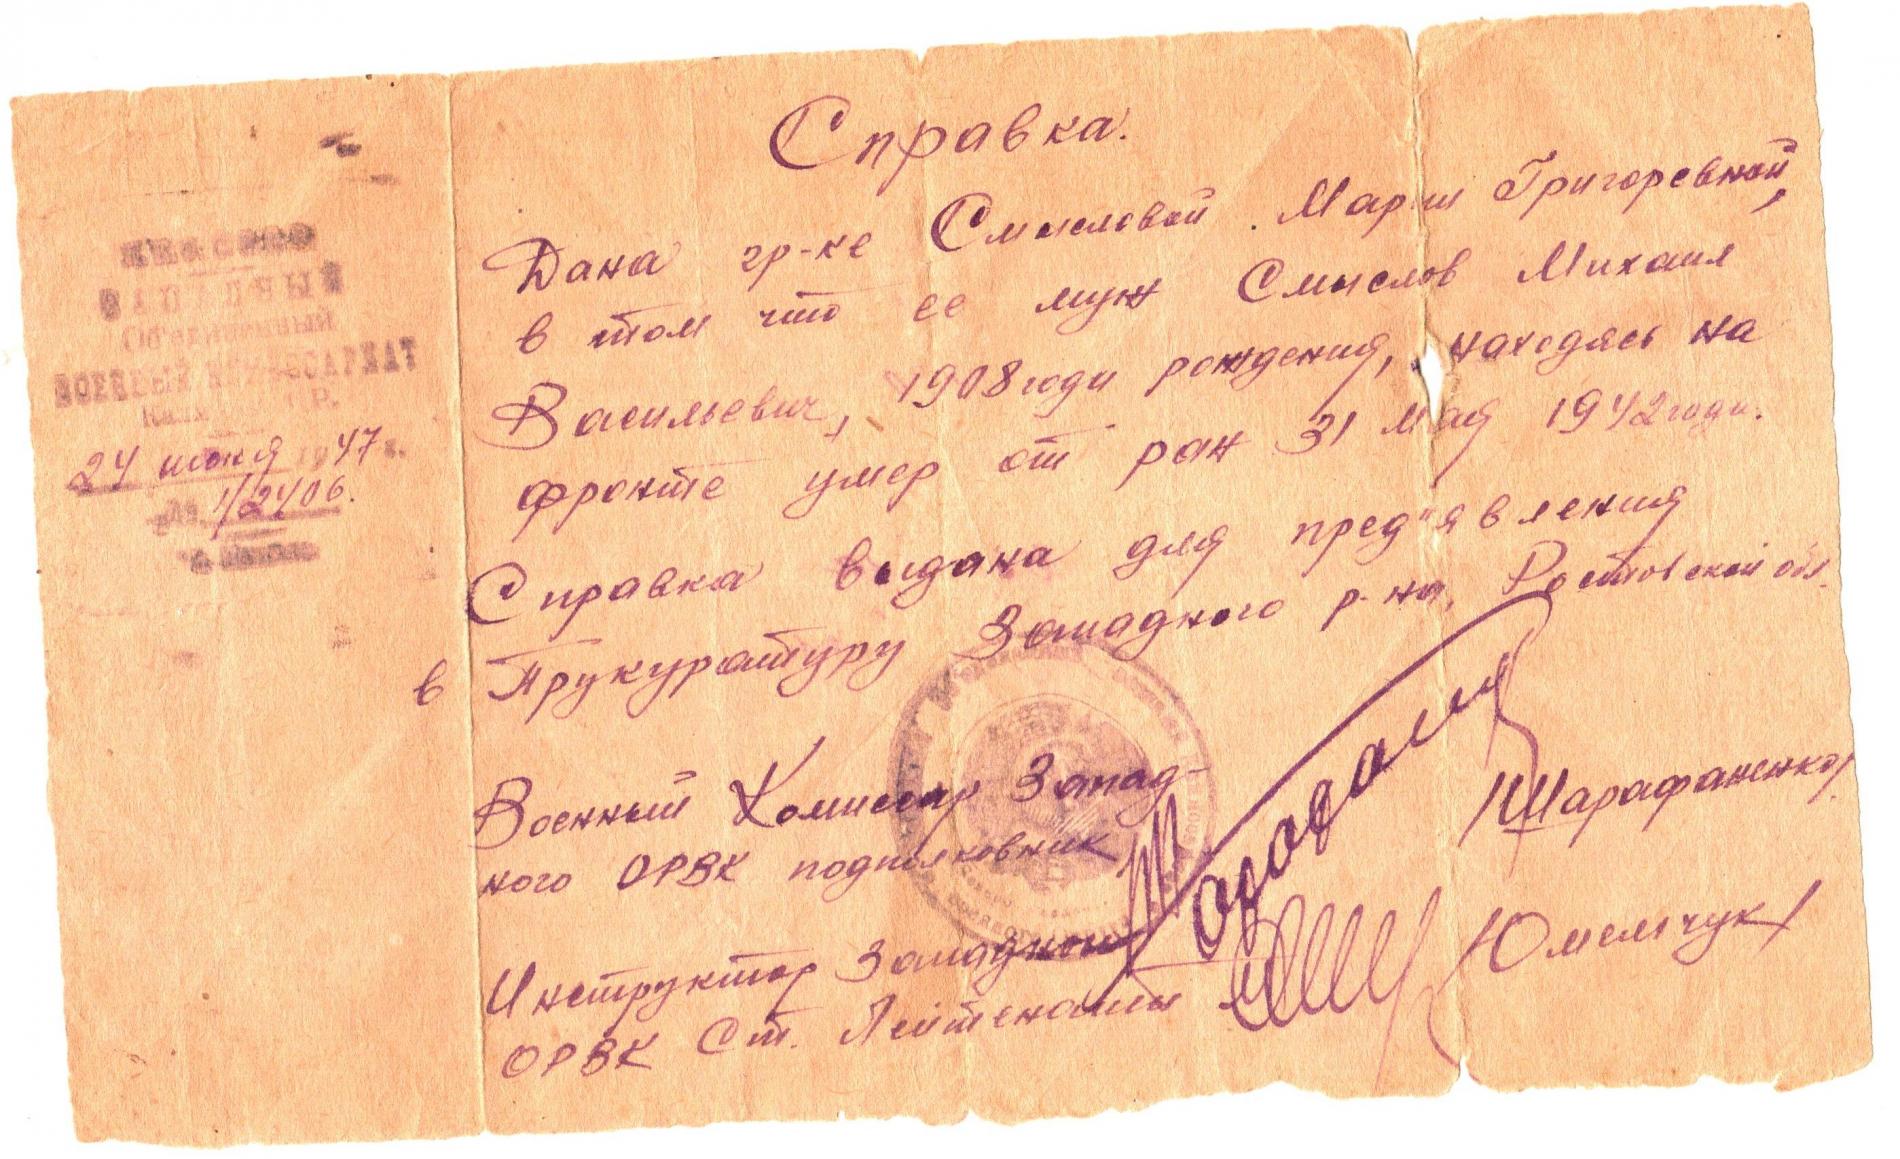 Справка.
Дана гр-ке Смысловой Марии Григоревной,
в том что ее муж Смыслов Михаил
Васильевич, 1908 годи рождения, находясь на
фронте умер от ран 31 мая 1942 годи.
Справка выдана для пред"явления
в Прукуратуру Западного р-на, Ростовской обл.
Военный Комиссар Запад-
ного ОРВК подполковник
/Шарафаненко/
Инструктор Западного
ОРВК Ст. Лейтенант
/Юмельчук/
ЗАПАДНЫЙ
Об'единенный
ВОЕННЫЙ КОМИССАРИАТ
24 июня 1947 г.
№ 1/2406.